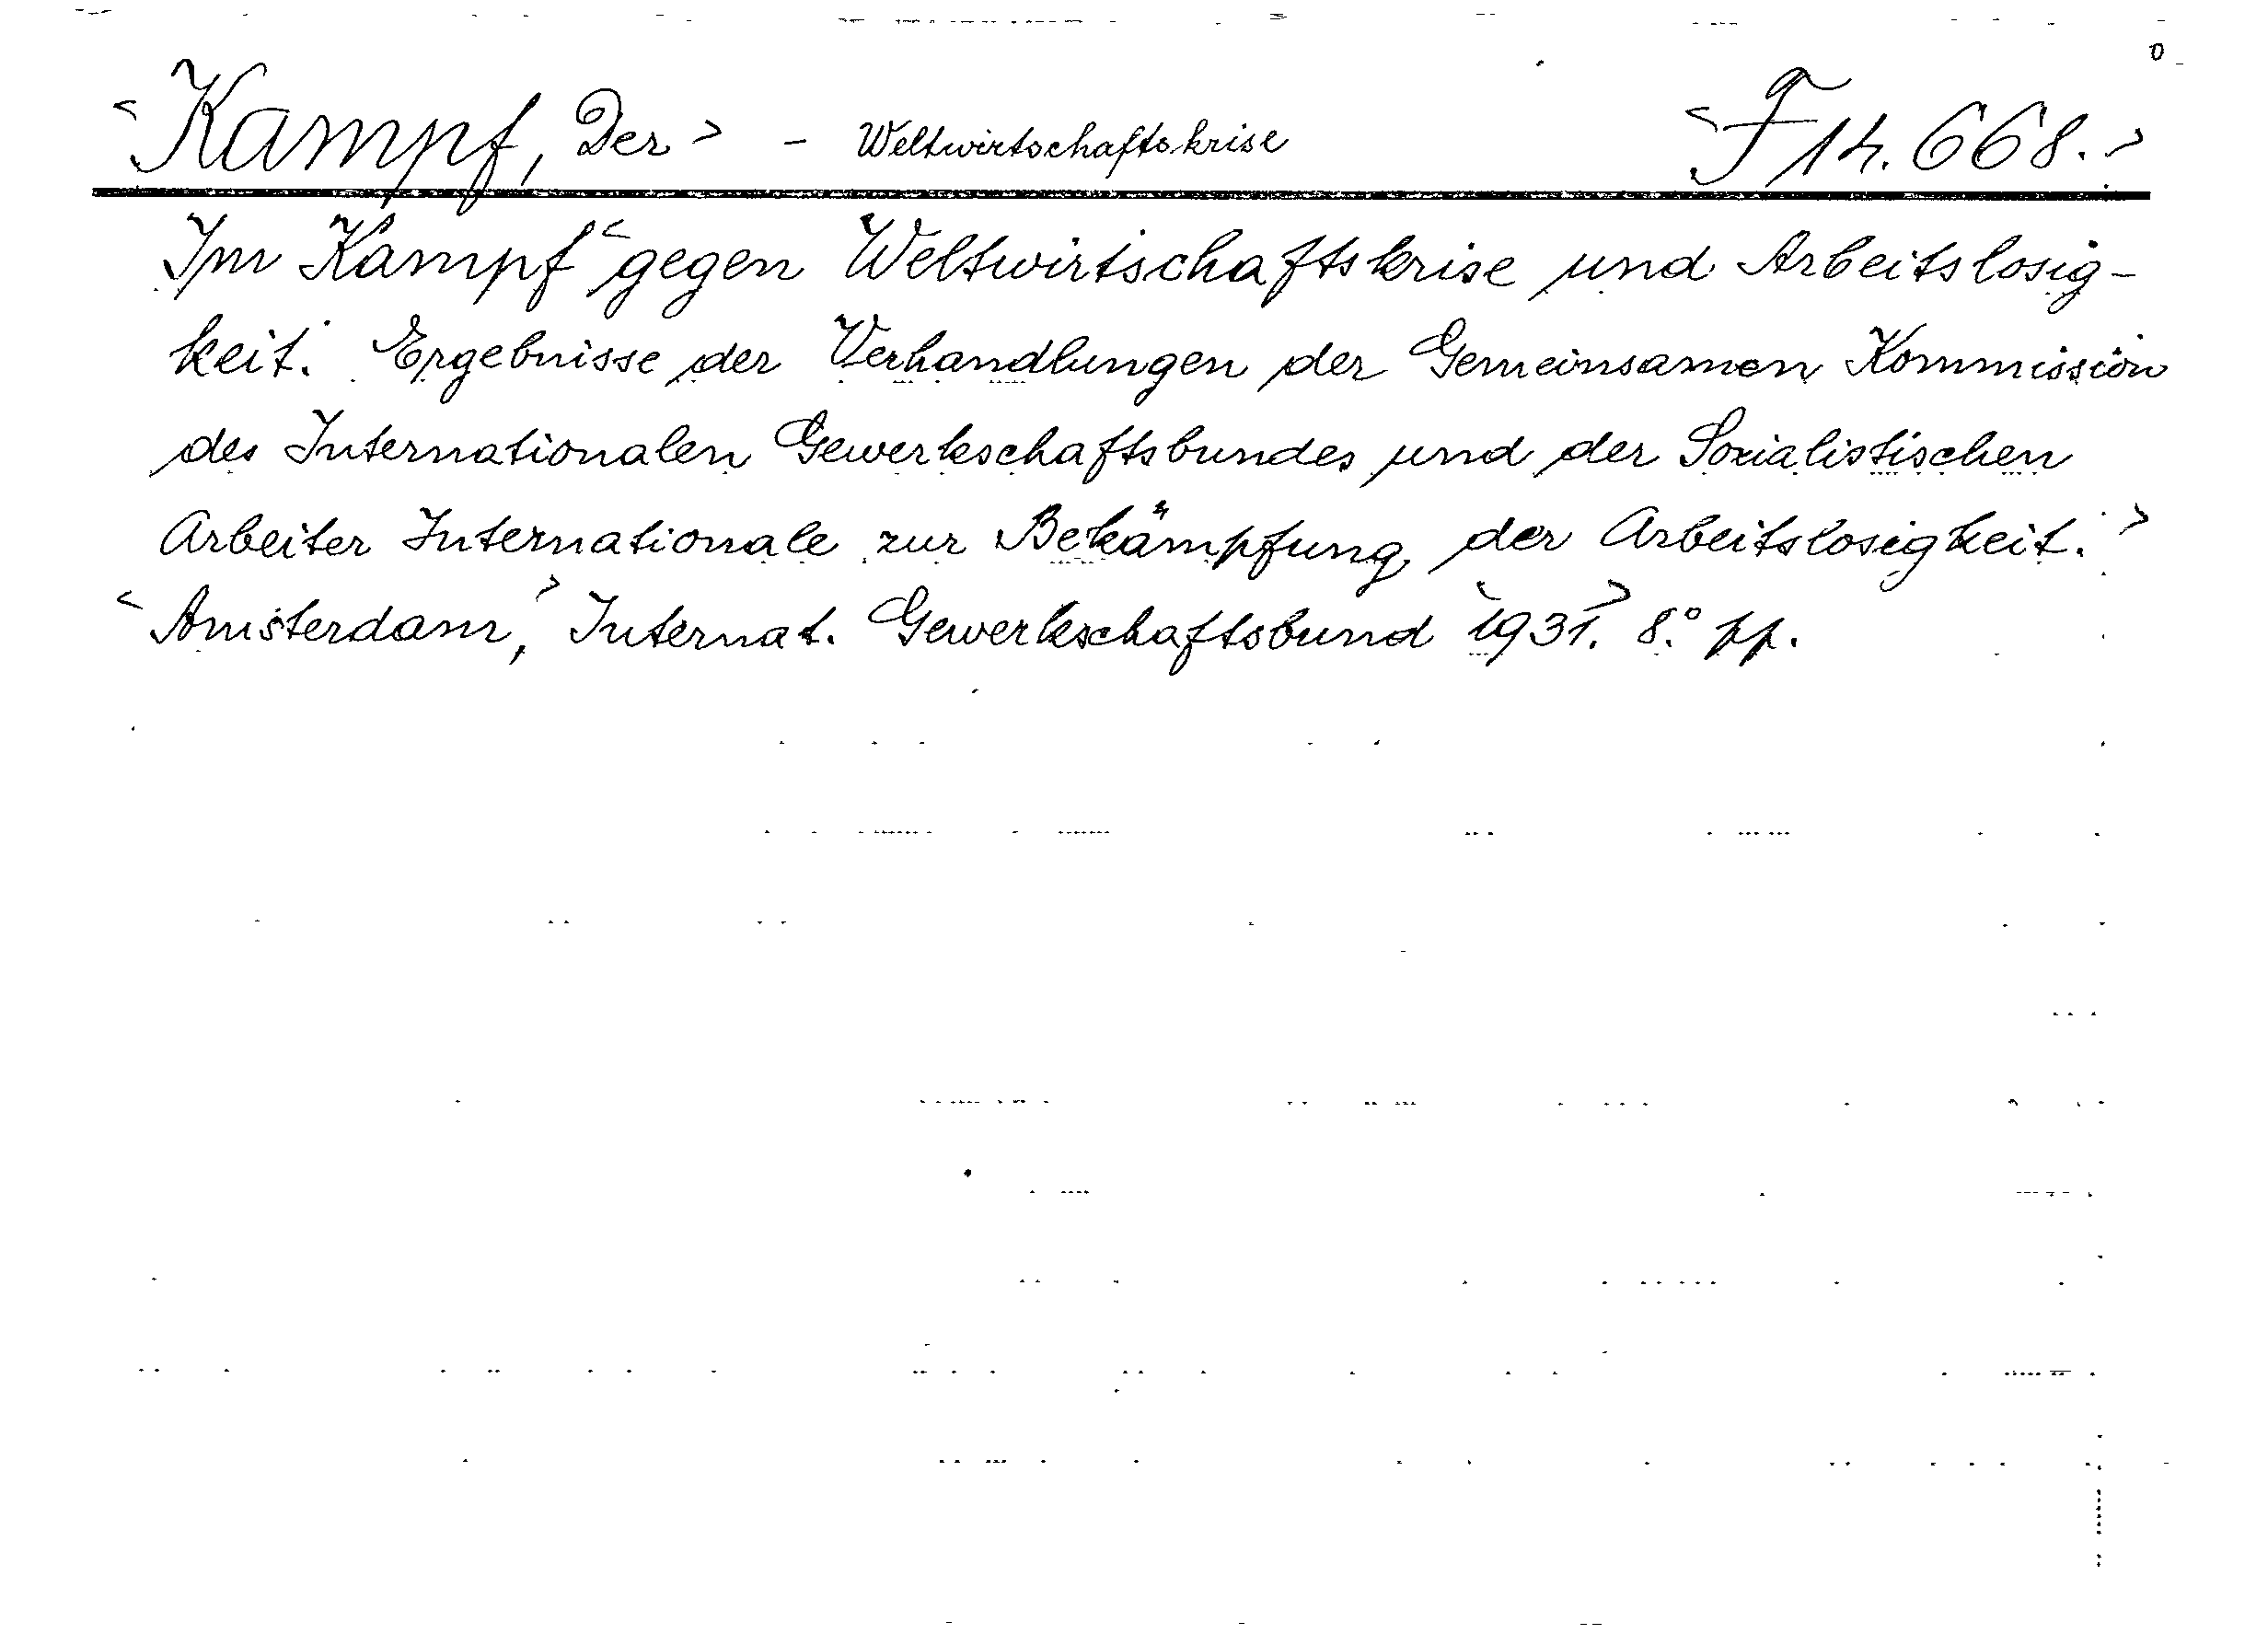 <Kampf, Der> - Weltwirtschaftskrise <F 14.668.>
Im Kampf <gegen Weltwirtschaftskrise und Arbeitslosig-
keit. Ergebnisse der Verhandlungen der Gemeinsamen Kommission
des Internationalen Gewerkschaftsbundes und der Sozialistischen
Arbeiter Internationale zur Bekämpfung der Arbeitslosigkeit.>
<Amsterdam,> Internat. Gewerkschaftsbund <1931.> 8.° pp.